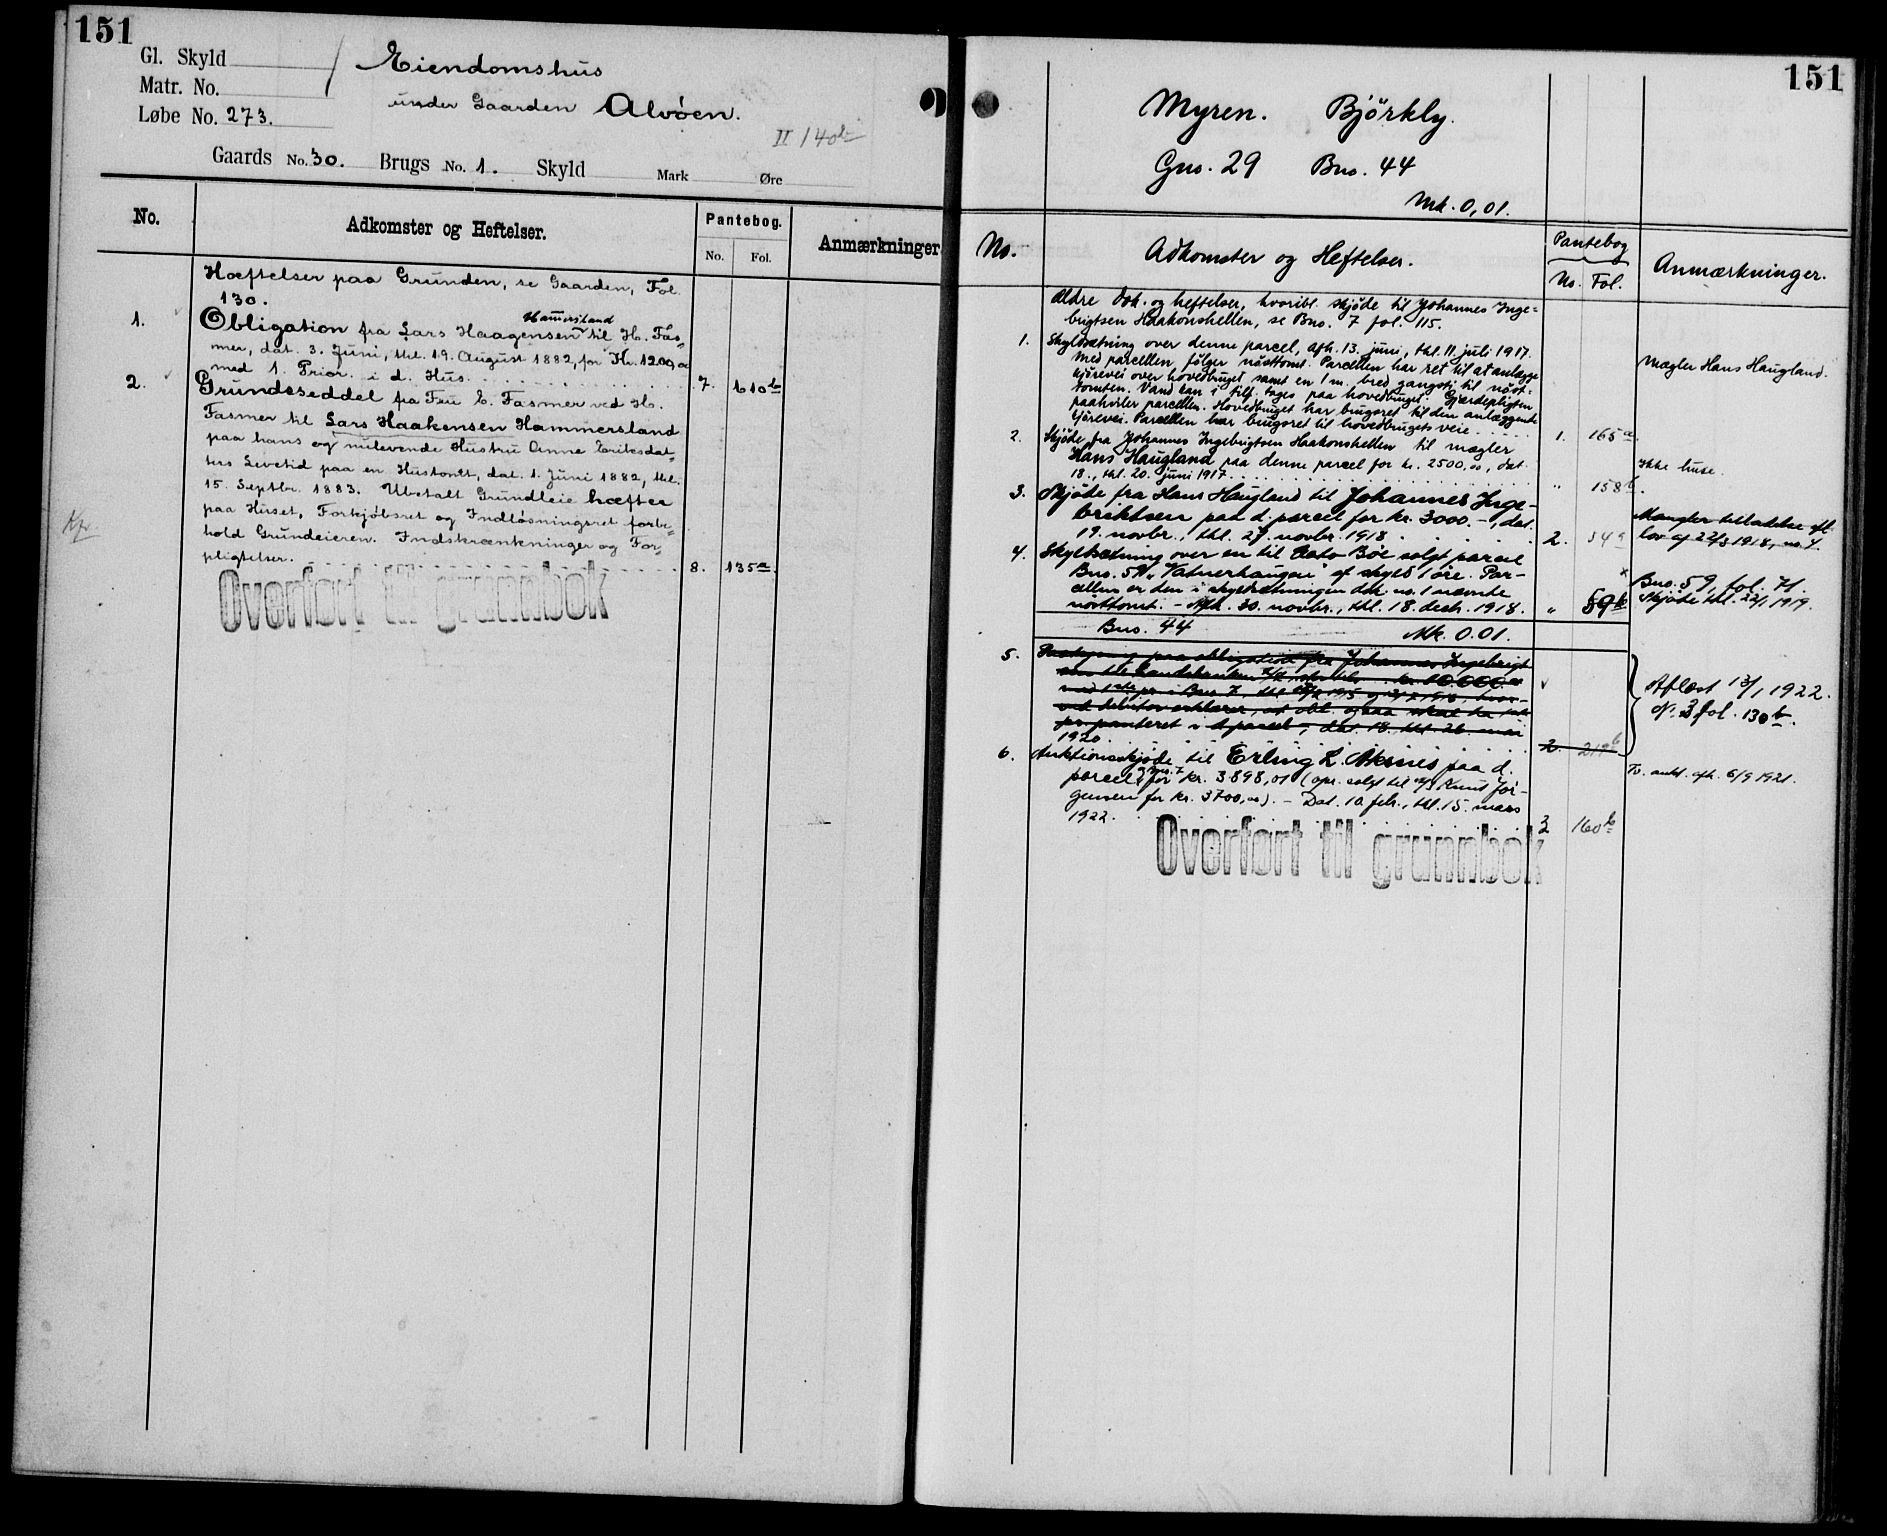 151
Gl. Skyld
Matr. No.
Løbe No. 273.
Eiendomshus
under Gaarden Alvøen.
II 140b
Gaards No. 30. Brugs No. 1. Skyld Mark Øre
No. Adkomster og Heftelser. Pantebog. Anmærkninger
No. Fol.
Hæftelser paa Grunden, se Gaarden, Fol.
130.
Hammersland
1. Obligation fra Lars Haagensen til H. Fas=
mer, dat. 3. Juni, thl. 19. August 1882, for Kr. 1200,00
med 1. Prior. i d. Hus. 7. 610b
2. Grundeseddel fra Fru E. Fasmer ved H.
Fasmer til Lars Haakensen Hammersland
paa hans og nulevende Hustru Anne Eriksdat=
ters Levetid paa en Hustomt, dat. 1. Juni 1882, thl.
15. Septbr. 1883. Ubetalt Grundleie hæfter
paa Huset, Forkjøbsret og Indløsningsret forbe=
hold Grundeieren. Indskrænkninger og For=
pligtelser. 8. 135a
Overført til grunnbok
151
Myren. Bjørkly.
Gno. 29 Bno. 44
Mk. 0,01.
No. Adkomster og Heftelser. Pantebog Anmærkninger.
No. Fol.
Ældre dok. og heftelser, hvoribl. skjøde til Johannes Inge=
brigtsen Haakonshellen, se Bno. 7 fol. 115.
1. Skyldsætning over denne parcel, afh. 13. juni, thl. 11. juli 1917.
Med parcellen følger nøsttomt. Parcellen har ret til at anlægge
kjørevei over hovedbruget samt en 1 m. bred gangsti til nøst=
tomten. Vand kan i tilf. tages paa hovedbruget. Gjærdepligten
paahviler parcellen. Hovedbruget har brugsret til den anlæggende
kjørevei. Parcellen har brugsret til hovedbrugets veie 1. 165a
Mægler Hans Haugland.
2. Skjøde fra Johannes Ingebrigtsen Haakonshellen til mægler
Hans Haugland paa denne parcel for kr. 2500,00, dat.
18., thl. 20. juni 1917. " 158b
Ikke huse.
3. Skjøde fra Hans Haugland til Johannes Inge-
briktsen paa d. parcel for kr. 3000.-, dat.
19. novbr., thl. 27. novbr. 1918. 2. 54a
Mangler tilladelse efl.
lov af 22/3 1918, no. 4.
4. Skyldsætning over en til Aato Bøe solgt parcel
Bno. 59 "Vatnerhaugen" af skyld 1 øre. Par-
cellen er den i skyldsætningen dok. no. 1 nævnte
nøsttomt. - Afh. 30. novbr., thl. 18. decb. 1918. " 59b
Bno. 59, fol. 71.
Skjøde thl. 22/1 1919.
Bno. 44 Mk. 0.01.
5. Paategning paa obligation fra Johannes Ingebrigt
kr. 10.000.00
1920 2 219b
Aflæst 13/1 1922.
N. 3 fol. 130b.
6. Auktionsskjøde til Erling L. Aksnes paa d.
parcel for kr. 3898,01 (opr. solgt til Knut Jør-
gensen for kr. 3700,00). - Dat. 10. febr., thl. 15. mars
1922. 3 160b
Tv. aukt. afh. 6/9 1921.
Overført til grunnbok